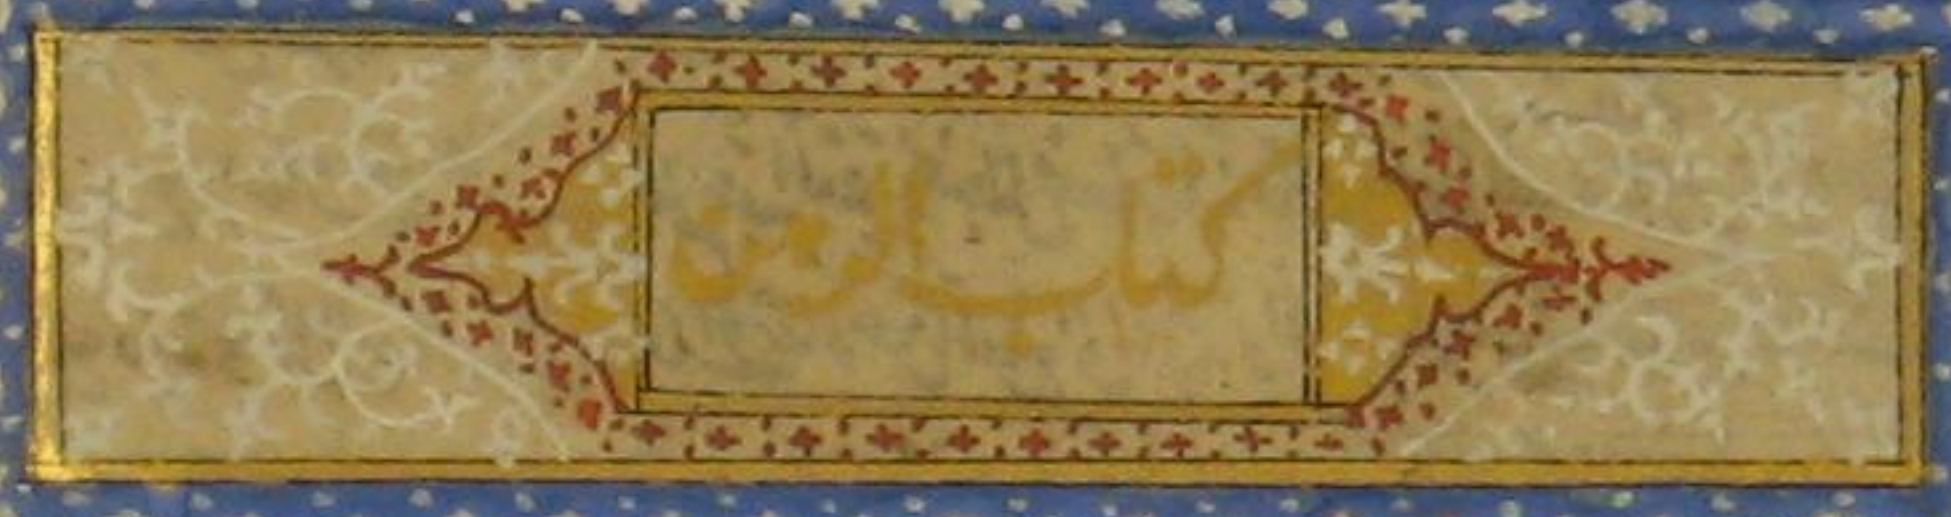 كتاب الرهن